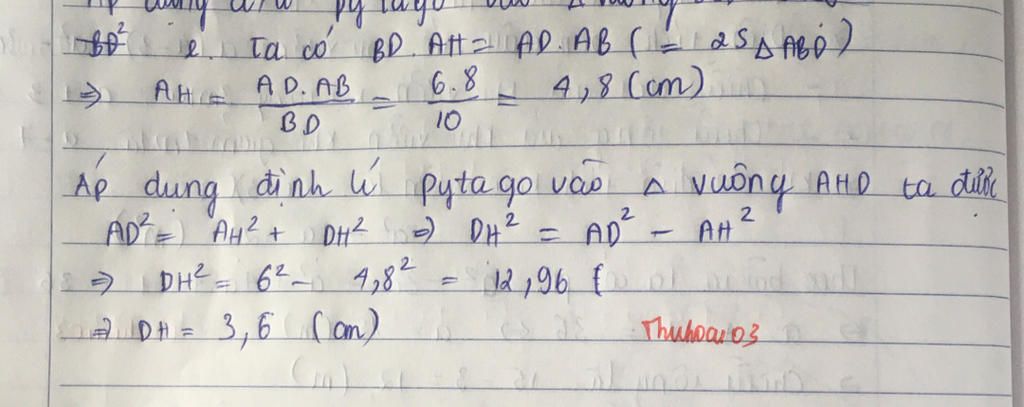 Áp dụng đ/lí pytago vào Δ vuông
BD² e. Ta có BD. AH = AD. AB ( = 2S Δ ABD )
⇒ AH = AD. AB / BD = 6.8 / 10 = 4,8 (cm)
Áp dụng định lí pytago vào Δ vuông AHD ta được
AD² = AH² + DH² ⇒ DH² = AD² - AH²
⇒ DH² = 6² - 4,8² = 12,96 (
⇒ DH = 3,6 (cm)
Thuhoai03